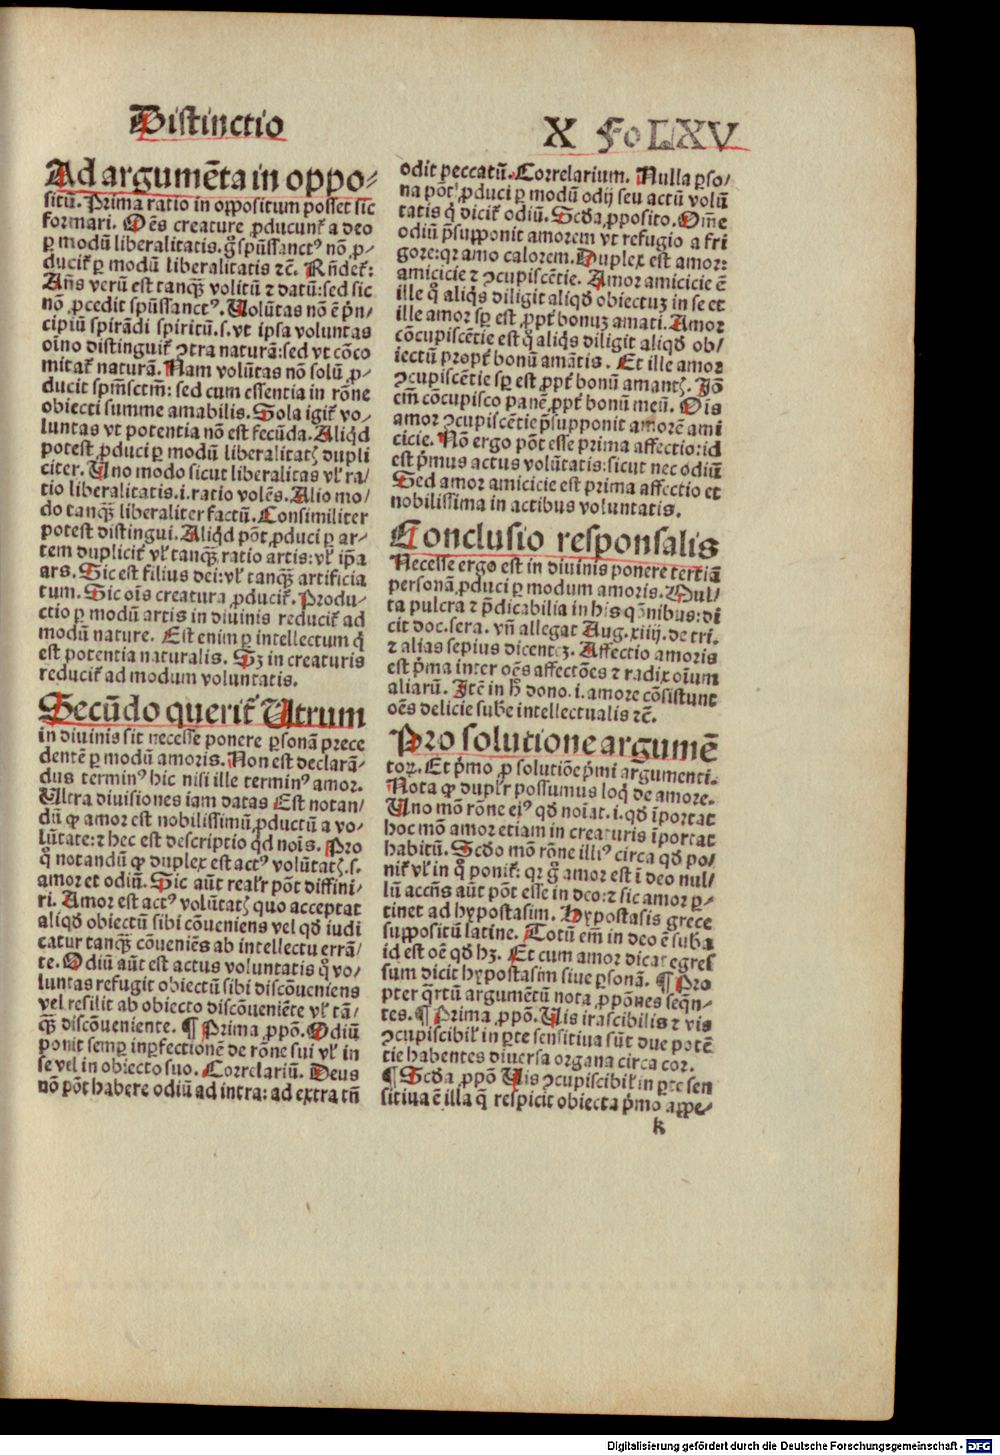 Distinctio X Fo LXV
Ad argumēta in oppo⸗
situ̅. Prima ratio in oppositum posset sic
formari. Oēs creature ꝓducunt᷑ a deo
ꝑ modū liberalitatis. gͦ spūssanctꝰ nō ꝓ⸗
ducit᷑ ꝑ modū liberalitatis ⁊c̄. Rn̄det᷑:
An̄s verū est tanqꝫ volitū ⁊ datū: sed sic
nō ꝓcedit spūssanctꝰ. Volūtas nō ē p̄n⸗
cipiū spirādi spiritū. s. vt ipsa voluntas
oīno distinguit᷑ ꝯtra naturā: sed vt cōco
mitat᷑ naturā. Nam volūtas nō solū ꝓ⸗
ducit spm̄sctm̄: sed cum essentia in rōne
obiecti summe amabilis. Sola igit᷑ vo⸗
luntas vt potentia nō est fecūda. Aliqͥd
potest ꝓduci ꝑ modū liberalitatꝭ dupli
citer. Uno modo sicut liberalitas vl᷑ ra⸗
tio liberalitatis. i. ratio volēs. Alio mo⸗
do tanqꝫ liberaliter factū. Consimiliter
potest distingui. Aliqͥd pōt ꝓduci ꝑ ar⸗
tem duplicit᷑ vl᷑ tanqꝫ ratio artis: vl᷑ ip̄a
ars. Sic est filius dei: vl᷑ tanqꝫ artificia
tum. Sic oīs creatura ꝓducit᷑. Produ⸗
ctio ꝑ modū artis in diuinis reducit᷑ ad
modū nature. Est enim ꝑ intellectum q̄
est potentia naturalis. Sꝫ in creaturis
reducit᷑ ad modum voluntatis.
Secūdo querit᷑ Utrum
in diuinis sit necesse ponere ꝑsonā prece
dentē ꝑ modū amoris. Non est declarā⸗
dus terminꝰ hic nisi ille terminꝰ amor.
Ultra diuisiones iam datas Est notan⸗
dū ꝙ amor est nobilissimū ꝓductū a vo⸗
lūtate: ⁊ hec est descriptio qͥd nois̄. Pro
qͦ notandū ꝙ duplex est actꝰ volūtatꝭ. s.
amor et odiū. Sic aūt realr̄ pōt diffini⸗
ri. Amor est actꝰ volūtatꝭ quo acceptat
aliqd̄ obiectū sibi cōueniens vel qd̄ iudi
catur tanqꝫ cōueniēs ab intellectu errā⸗
te. Odiū aūt est actus voluntatis qͦ vo⸗
luntas refugit obiectū sibi discōueniens
vel resilit ab obiecto discōueniēte vl᷑ tā⸗
qꝫ discōueniente. ¶ Prima ꝓpō. Odiū
ponit semꝑ inꝑfectionē de rōne sui vl᷑ in
se vel in obiecto suo. Correlariū. Deus
nō pōt habere odiū ad intra: ad extra tn̄
odit peccatū. Correlarium. Nulla ꝑso⸗
na pōt ꝓduci ꝑ modū odij seu actū volū
tatis q̄ dicit᷑ odiū. Scd̄a ꝓposito. Om̄e
odiū p̄supponit amorem vt refugio a fri
gore: qr amo calorem. Duplex est amor:
amicicie ⁊ ꝯcupiscētie. Amor amicicie ē
ille qͦ aliqͥs diligit aliqd̄ obiectuꝫ in se et
ille amor sꝑ est ꝓpt᷑ bonuꝫ amati. Amor
cōcupiscētie est qͦ aliqͥs diligit aliqd̄ ob⸗
iectū propt᷑ bonū amātis. Et ille amor
ꝯcupiscētie sꝑ est ꝓpt᷑ bonū amantꝭ. Iō
em̄ cōcupisco panē ꝓpt᷑ bonū meū. Oīs
amor ꝯcupiscētie p̄supponit amorē ami
cicie. Nō ergo pōt esse prima affectio: id
est p̄mus actus volūtatis: sicut nec odiū
Sed amor amicicie est prima affectio et
nobilissima in actibus voluntatis.
Conclusio responsalis
Necesse ergo est in diuinis ponere tertiā
personā ꝓduci ꝑ modum amoris. Mul⸗
ta pulcra ⁊ p̄dicabilia in his qōnibus: di
cit doc. sera. vn̄ allegat Aug. xiiij. de tri.
⁊ alias sepius dicenteꝫ. Affectio amoris
est p̄ma inter oēs affectōes ⁊ radix oīum
aliarū. Itē in hͦ dono. i. amore cōsistunt
oēs delicie sub̄e intellectualis ⁊c̄.
Pro solutione argumē
toꝝ. Et p̄mo ꝓ solutiōe p̄mi argumenti.
Nota ꝙ duplr̄ possumus loqͥ de amore.
Uno mō rōne eiꝰ qd̄ noīat. i. qd̄ īportat
hoc mō amor etiam in creaturis īportat
habitū. Scd̄o mō rōne illiꝰ circa qd̄ po⸗
nit᷑ vl᷑ in qͦ ponit᷑: qr gͦ amor est ī deo nul⸗
lū accn̄s aūt pōt esse in deo: ⁊ sic amor ꝑ⸗
tinet ad hypostasim. Hypostasis grece
suppositū latine. Totū em̄ in deo ē sub̄a
id est oē qd̄ hꝫ. Et cum amor dicat egres
sum dicit hypostasim siue ꝑsonā. ¶ Pro
pter q̄rtū argumētū nota ꝓpōnes seqn̄⸗
tes. ¶ Prima ꝓpō. Uis irascibilis ⁊ vis
ꝯcupiscibil᷑ in ꝑte sensitiua sūt due potē
tie habentes diuersa organa circa cor.
¶ Scd̄a ꝓpō Uis ꝯcupiscibil᷑ in ꝑte sen
sitiua ē illa q̄ respicit obiecta p̄mo appe⸗
k
Digitalisierung gefördert durch die Deutsche Forschungsgemeinschaft - DFG